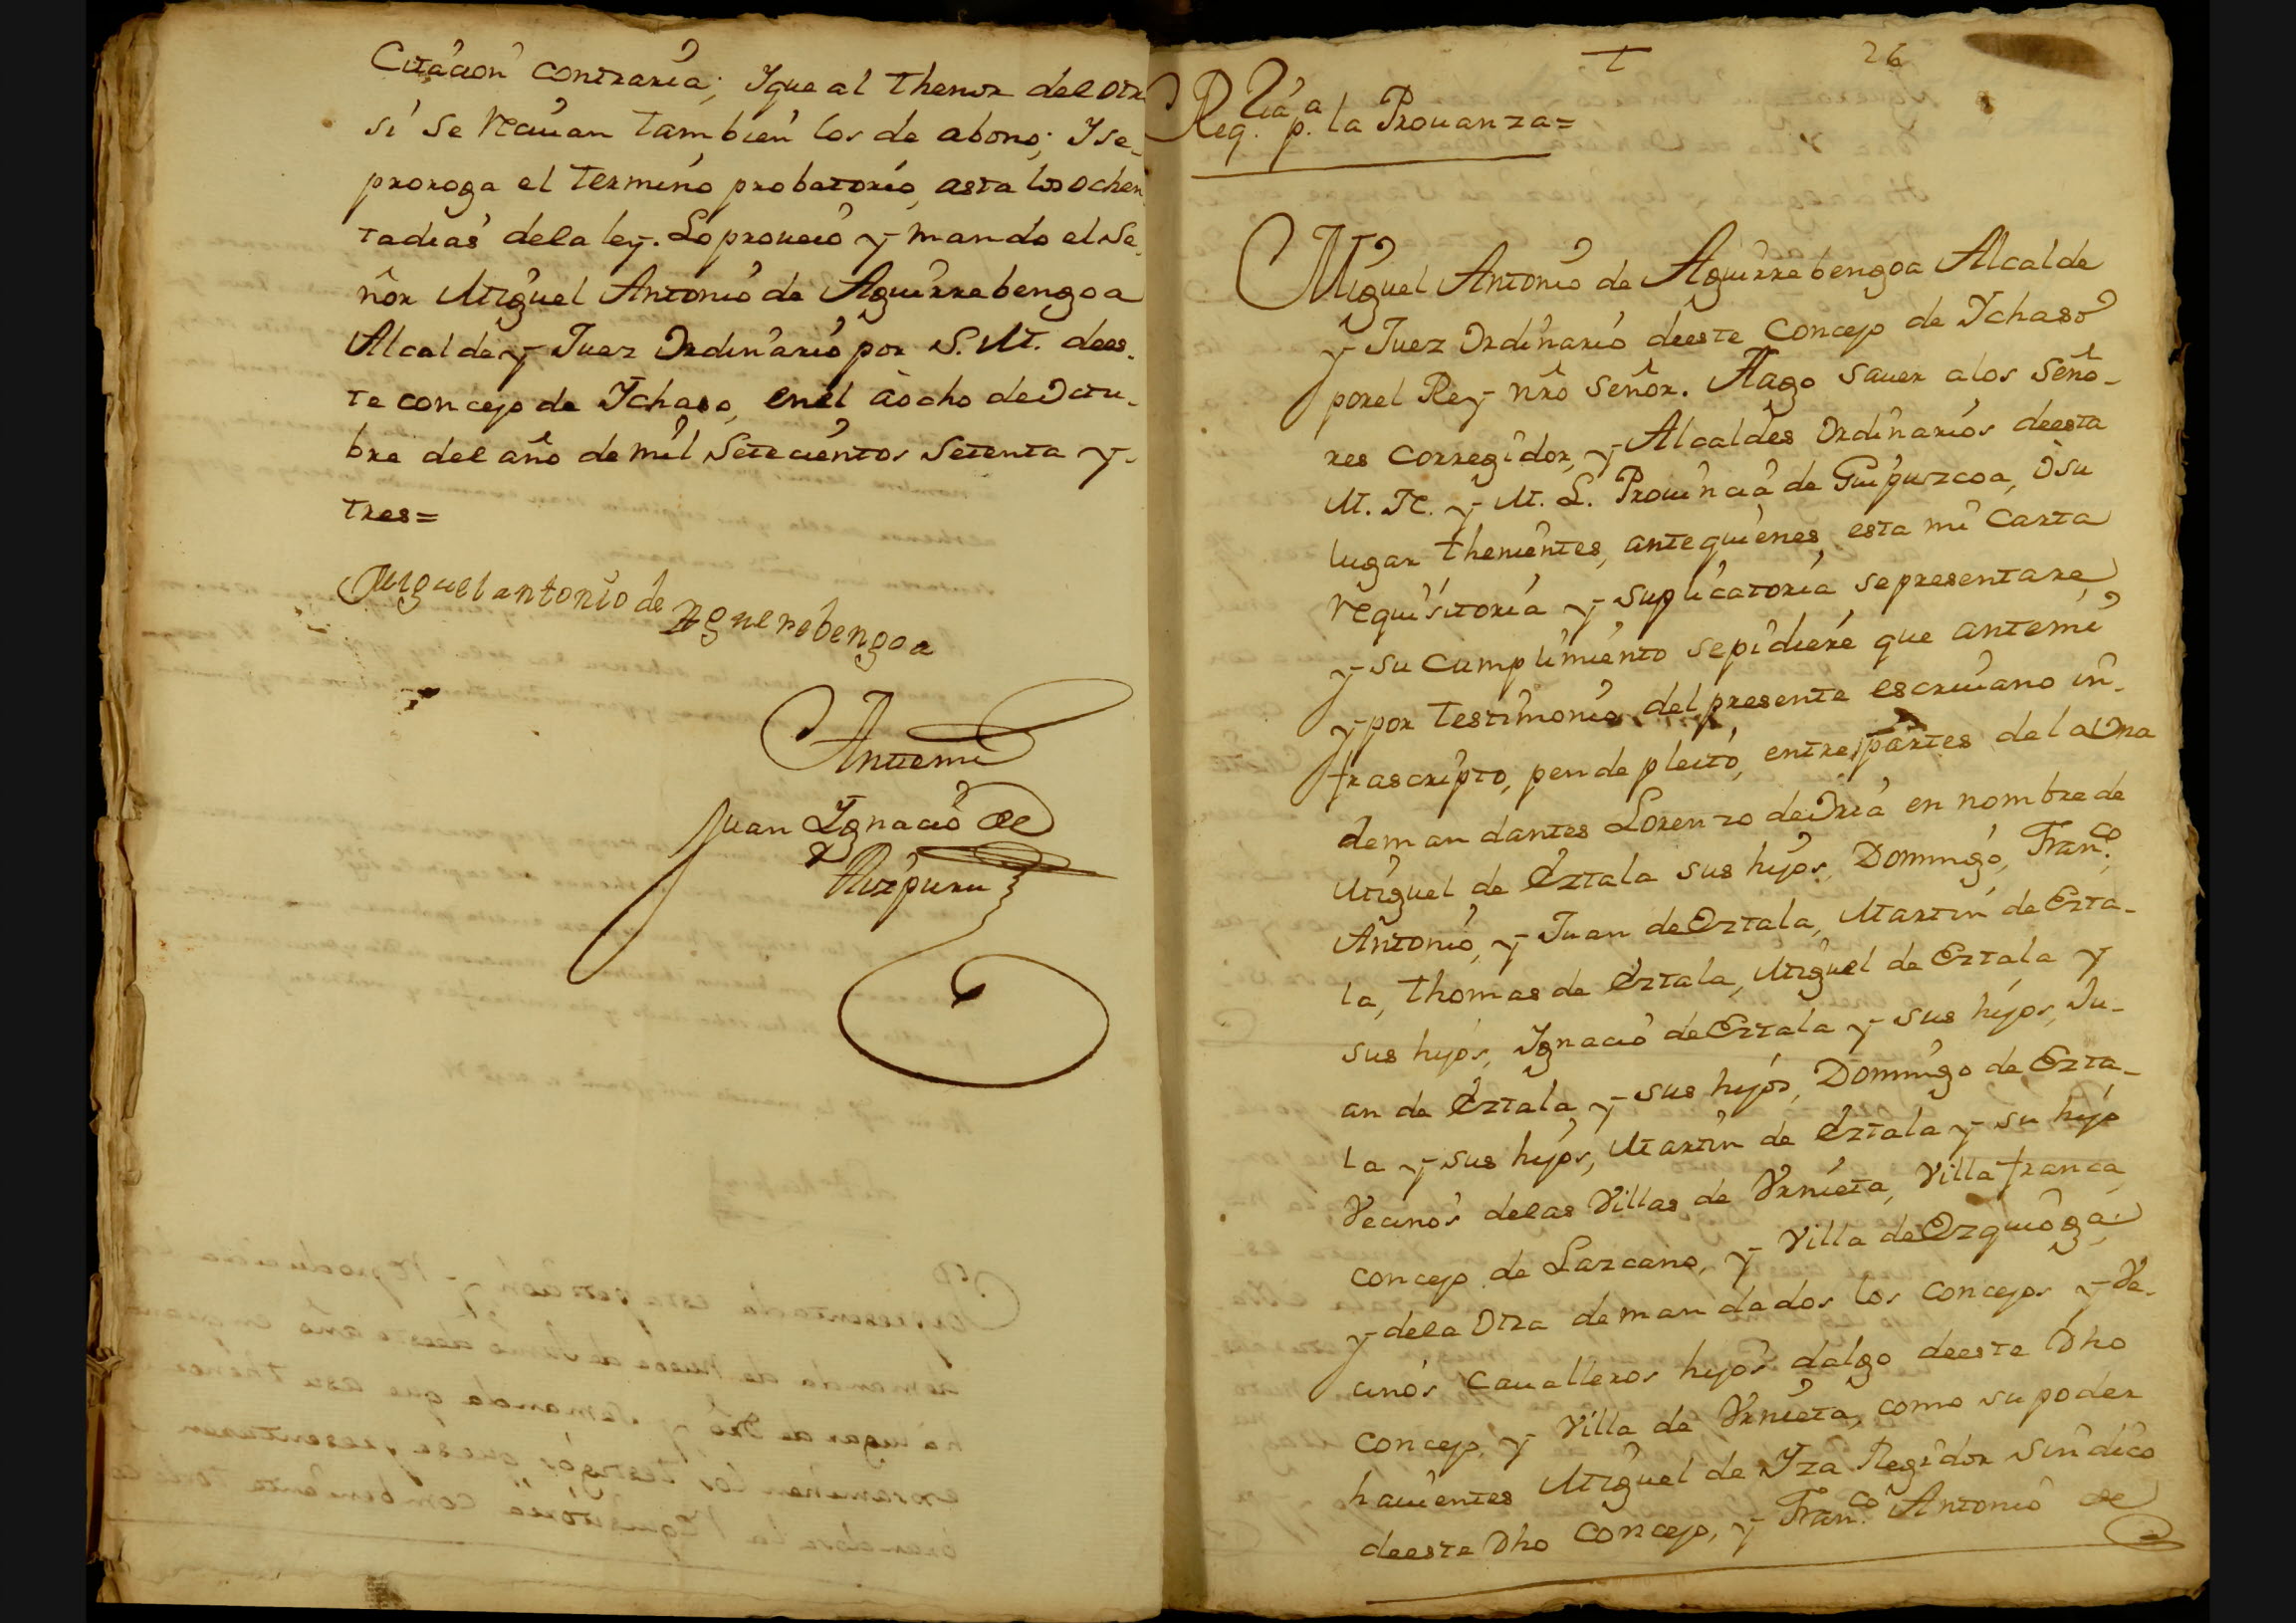 Citación contraria; Yque al thenor del otr
sí se reciuan tambien los de abono; Yse-
proroga el termino probatorio, asta los ochen
tadias dela ley. Lo proueió y mando el Se-
ñor Miguel Antonio de Aguirrebengoa
Alcalde y Juez Ordinario por S. M. dees-
te concejo de Ychaso, enél áocho de Octu-
bre del año de mil Setecientos Setenta y-
tres=
Miguel antonio de Aguerebengoa
Antemi
Juan Ygnacio de
Aizpuru
26
Req.ria p.a la Prouanza=
Miguel Antonio de Aguirrebengoa Alcalde
y Juez Ordinario deeste Concejo de Ychaso
porel Rey nrô Señor. Hago sauer alos Seño-
res Corregidor, y Alcaldes Ordinarios deesta
M. N. y M. L. Prouincia de Guipuzcoa, ò su
lugar thenientes, antequienes, esta mi Carta
requisitoria y suplicatoria sepresentare,
y su Cumplimiento sepidieré que antemi
y por testimonio del presente escriuano in-
frascripto, pende pleito, entre partes dela Una
demandantes Lorenzo de Oria en nombre de
Miguel de Eztala sus hijos, Domingo, Fran.co
Antonio, y Juan de Eztala, Martin de Ezta-
la, Thomas de Eztala, Miguel de Eztala y
sus hijos, Ygnacio de Eztala y sus hijos, Ju-
an de Eztala, y sus hijos, Domingo de Ezta-
la y sus hijos, Martin de Eztala y su hijo
Vecinos delas Villas de Vrnieta, Villafranca,
concejo de Lazcano, y Villa de Ezquioga;
y dela Otra demandados los Concejos y Ve-
cinos Caualleros hijos dalgo deeste Dho
concejo, y Villa de Vrnieta, como su poder
hauientes Miguel de Yza Regidor Sindico
deeste Dho Concejo, y Fran.co Antonio de